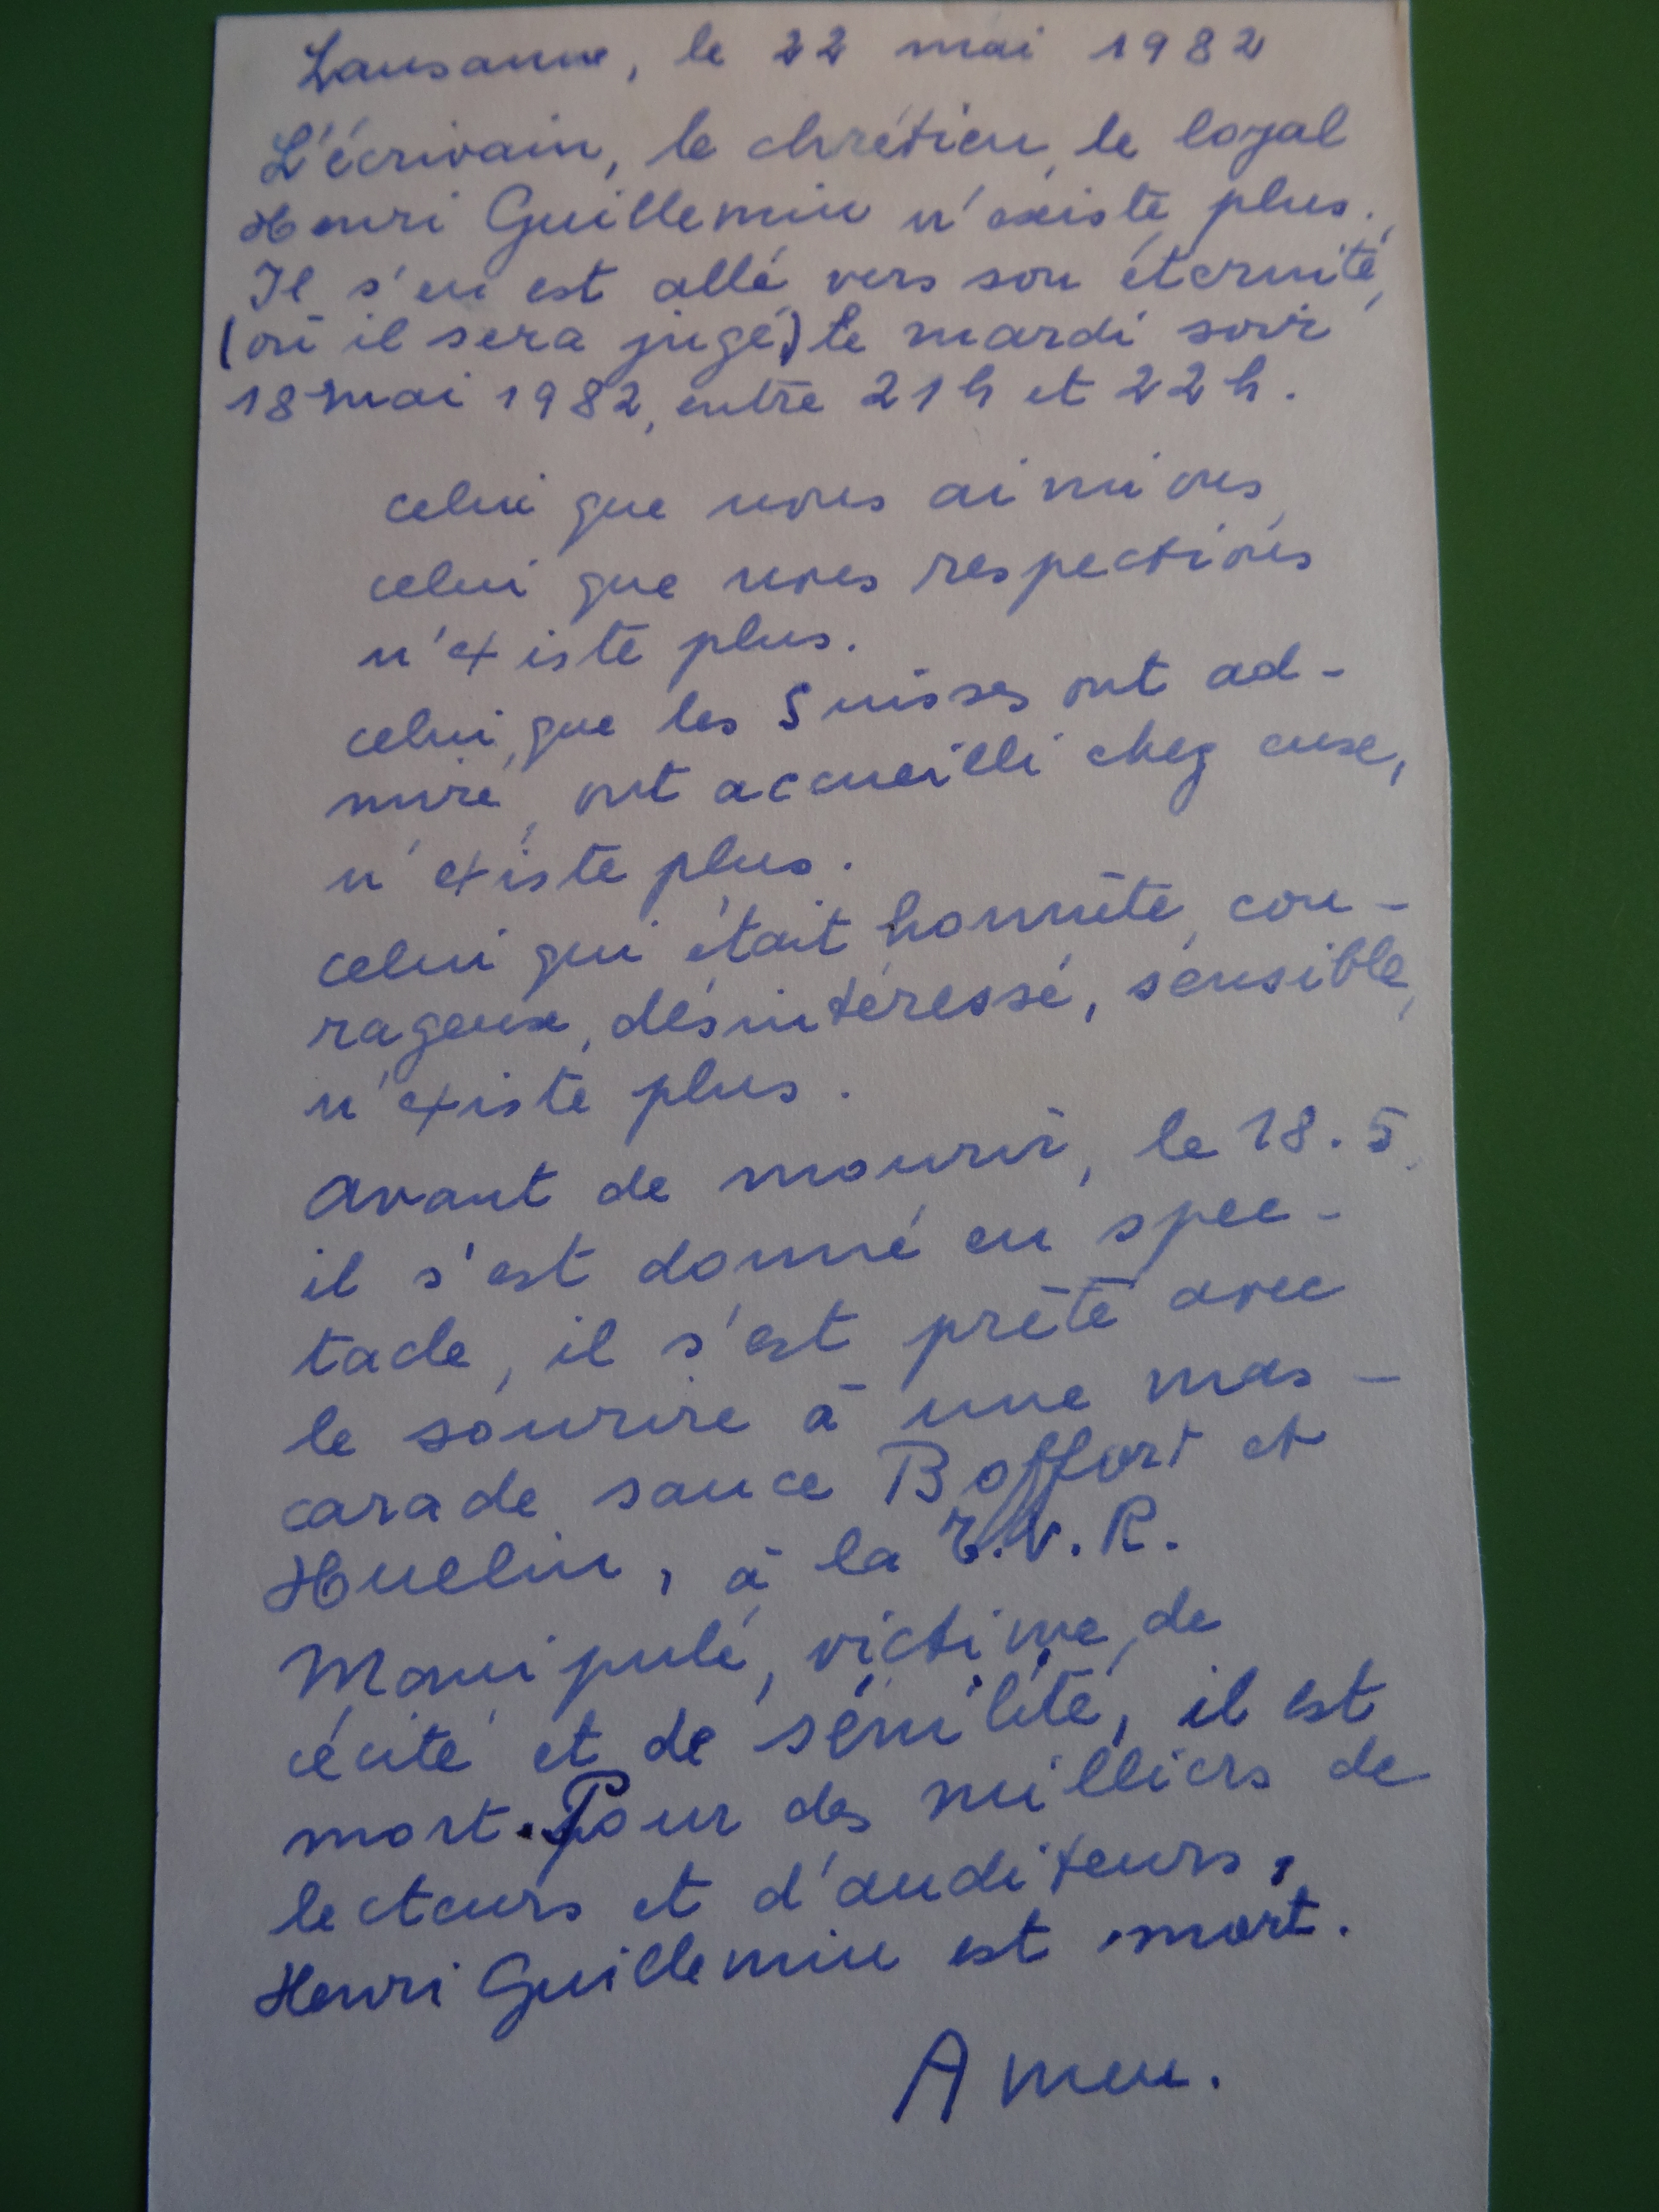 Lausanne, le 22 mai 1982
L'écrivain, le chrétien, le loyal
Henri Guillemin n'existe plus.
Il s'en est allé vers son éternité,
(où il sera jugé) le mardi soir
18 mai 1982, entre 21h et 22h.
celui que nous aimions,
celui que nous respections
n'existe plus.
celui, que les Suisses ont ad-
miré, ont accueilli chez eux,
n'existe plus.
celui qui était honnête, cou-
rageux, désintéressé, sensible,
n'existe plus.
Avant de mourir, le 18.5,
il s'est donné en spec-
tacle, il s'est prêté avec
le sourire à une mas-
carade sauce Boffort et
Huelin, à la T.V.R.
Manipulé, victime de
cécité et de sénilité, il est
mort. Pour des milliers de
lecteurs et d'auditeurs,
Henri Guillemin est mort.
Amen.